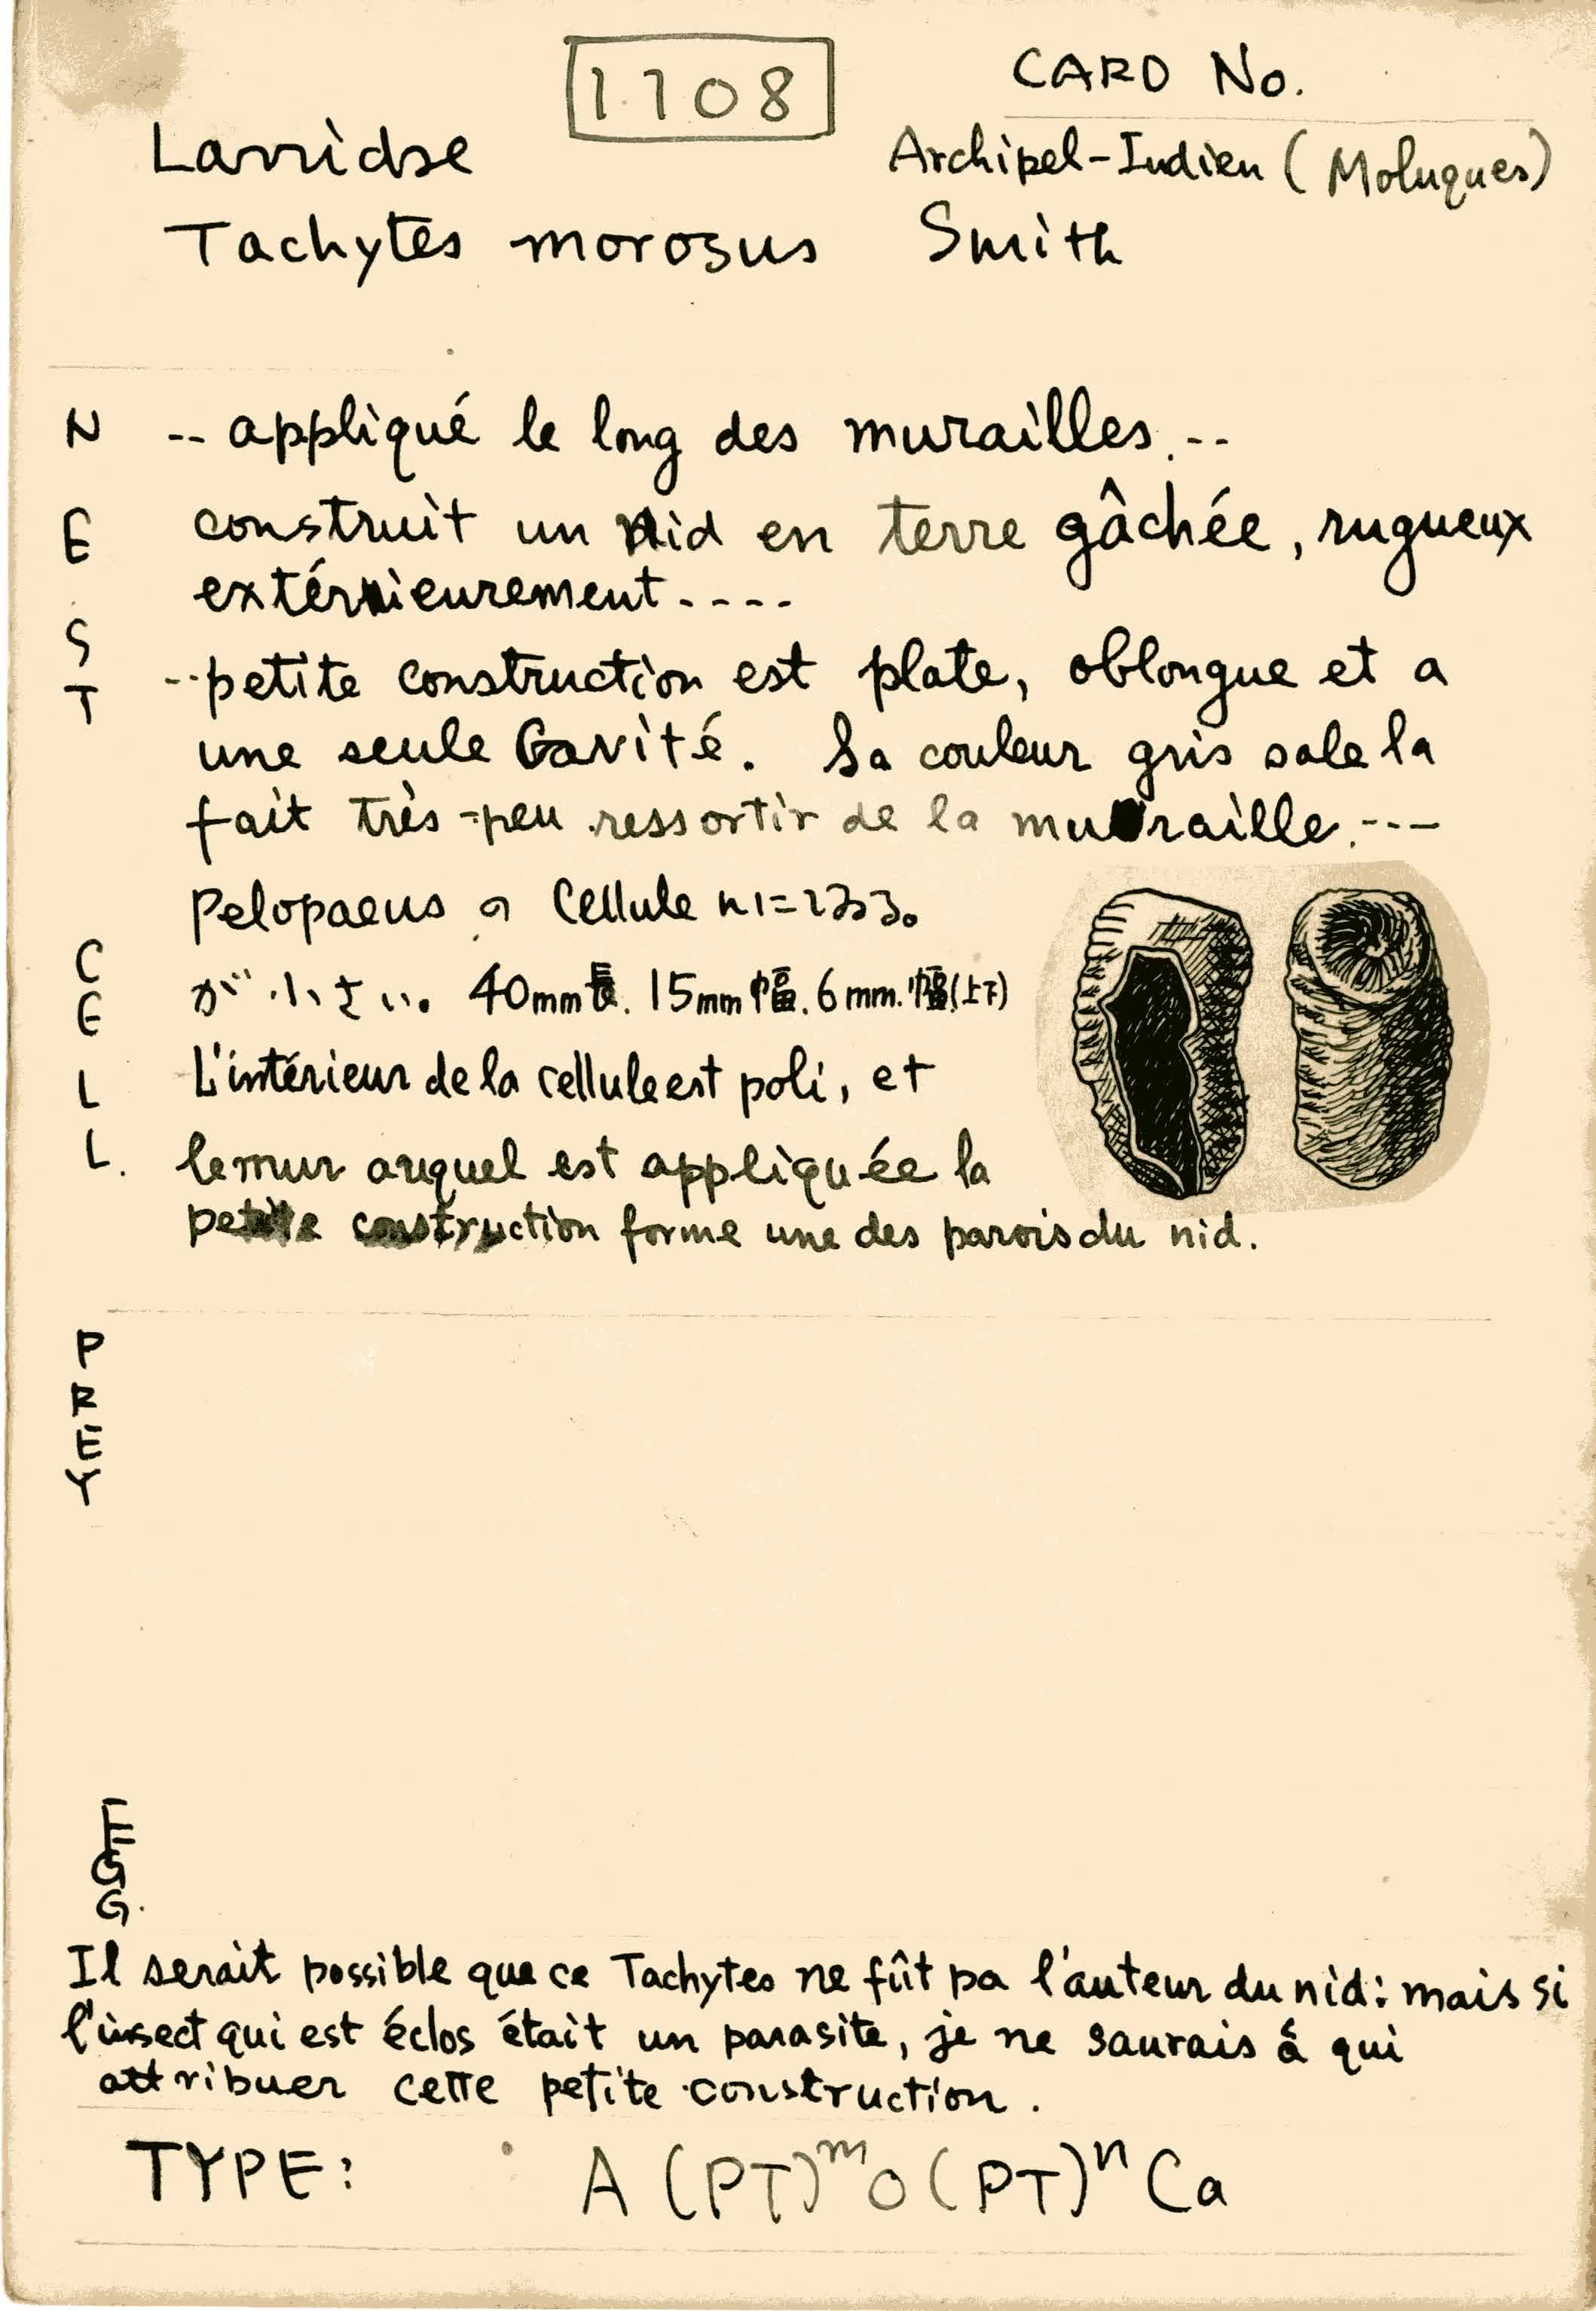 1108
CARD No.
Larridae
Archipel-Indien (Moluques)
Tachytes morosus Smith
NEST
-- appliqué le long des murailles.--
construit un nid en terre gâchée, rugueux
extérieurement----
--petite construction est plate, oblongue et a
une seule Cavité. Sa couleur gris sale la
fait très-peu ressortir de la muraille.---
CELL.
Pelopaeus の Cellule に似てゐる。
が小さい。 40mm長. 15mm幅. 6mm.幅(上下)
L'intérieur de la cellule est poli, et
le mur auquel est appliquée la
petite construction forme une des parois du nid.
PREY
EGG.
Il serait possible que ce Tachytes ne fût pa l'auteur du nid: mais si
l'insect qui est éclos était un parasite, je ne saurais á qui
attribuer cette petite construction.
TYPE: A (PT)^m O (PT)^n Ca